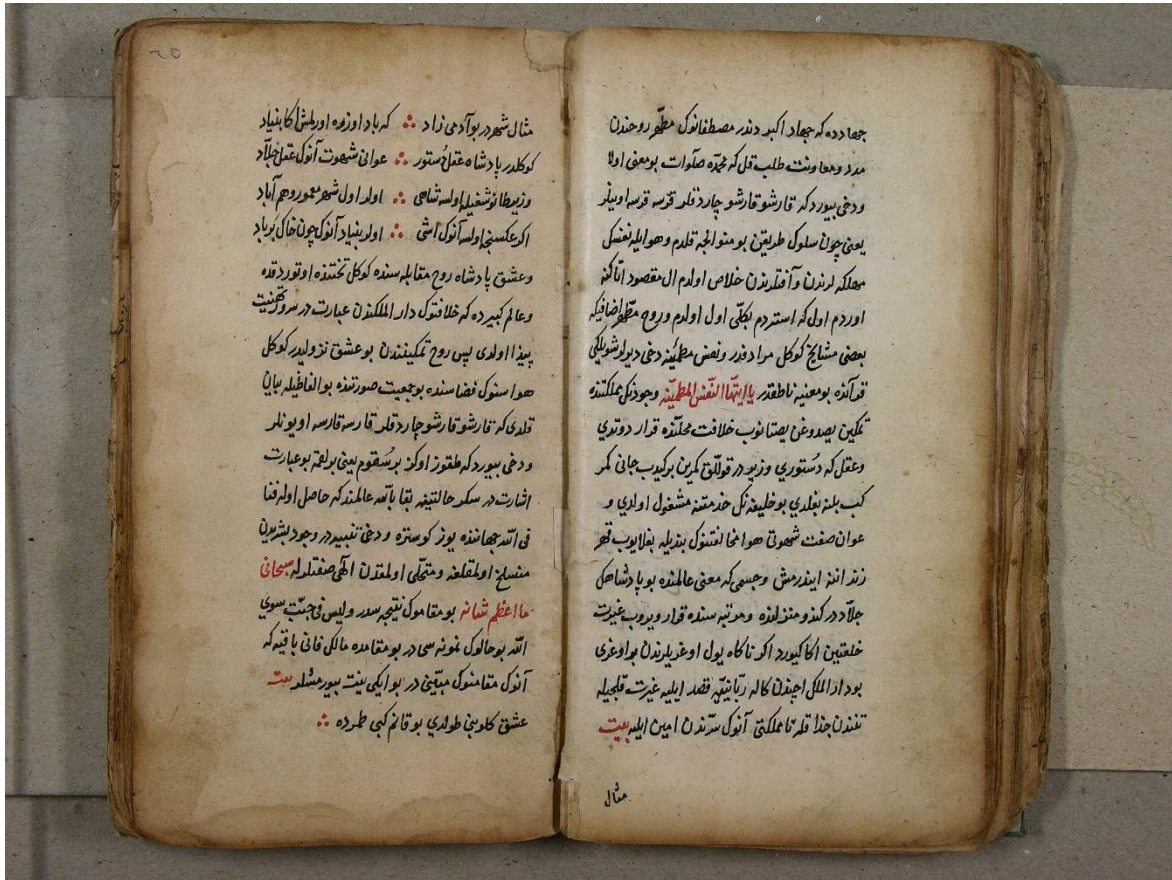 جهادده که جهاد اکبر دندر مصطفانوک مطهر روحندن
مدد ومعاونت طلب قل که محمده صلوات بومعنی اولا
ودخی بیوردکه قارشو قارشو چاردقلر قرسه قرسه اوینلر
یعنی چون سلوک طریقن بو منوالجه قلدم وهوا ایله نفسک
مهلکه لرندن وآفتلرندن خلاص اولدم ال مقصود اتاکنه
اوردم اول که استردم بکلی اول اولدم وروح مطهر اضافیکه
بعضی مشایخ کوکل مرادقدر ونفس مطمئنه دخی دیرلر شویلکی
قرآنده بومعنیه ناطقدر یا ایتها النفس المطمئنه وجودنک مملکتنده
تمکین یصدوغن یصتانوب خلافت محلنده قرار دوتدی
وعقل که دستوری وزیردر قوللق کمرین برکیدوب جانی کمر
کب بلنه بغلدی بو خلیفه نک خدمتنه مشغول اولدی و
عوان صفت شهوتی هوا مخالفتنوک بندیله بغلایوب قهر
زنداننه ایندرمش وجسمی که معنی عالمنده بو پادشاهک
جلاددر کندو منزلنده ومرتبه سنده قرار ویروب غیرت
خلعتین اکا کیورد اکر ناکاه یول اوغریلرندن بر اوغری
بو دار الملک ایچندن کاله ربانیتیه قصد ایلیه غیرت قلیجیله
تندن جدا قله تا مملکتی آنوک شرندن امین ایلیه بیت
مثال
۲۵
مثال شهردر بو آدمی زاد ∴ که باد اوزره اورلمش اکا بنیاد
کوکلدر پادشاه عقل دستور ∴ عوانی شهوت آنوک عقل جلاد
وزیرطانوشغیله اولسه شاهی ∴ اولر اول شهر معمور وهم آباد
اکر عکسنجه اولسه آنوک اشی ∴ اولر بنیاد آنوک چون خاک بر باد
وعشق پادشاه روح مقابله سنده کوکل تختنده اوتوردقده
وعالم کبیرده که خلافتوک دار الملکندن عبارت در سرور تهنیت
پیدا اولدی پس روح تمکینندن بو عشق نزولیدر کوکل
هواسنوک فضاسنده بو جمعیت صورتنده بو الفاظیله بیان
قلدی که قارشو قارشو چاردقلر قارسه قارسه اوینلر
ودخی بیوردکه طقوز اوکز بر سقوم یعنی بولغه بو عبارت
اشارت در سکر حالتینه بقا بالله عالمندکه حاصل اوله فنا
فی الله جهاننده یوز کوستره ودخی تنبیه در وجود بشریدن
منسلخ اولمقلغه ومتحلی اولمقدن الهی صفتلرله سبحانی
ما اعظم شانه بو مقاموک نتیجه سدر ولیس فی جبتی سوی
الله بو حالوک نمونه سی در بو مقامده مالکی فانی باقیه که
آنوک مقامنوک مبینی در بو ایکی بیت بیورمشلر بیت
عشق کلوبنی طولدی بو قانم کبی طمرده ∴